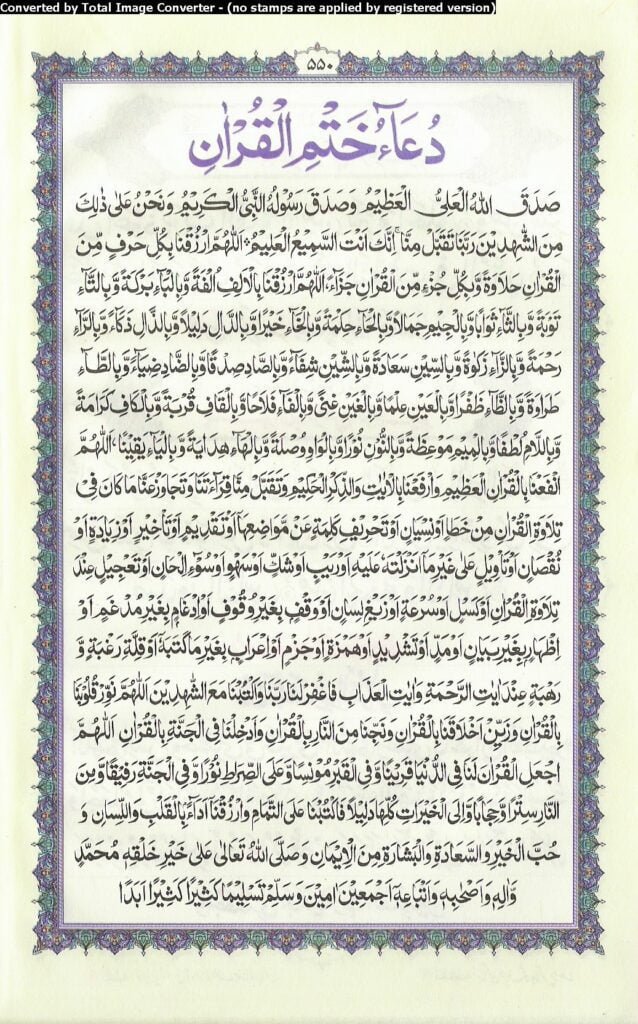 Converted by Total Image Converter - (no stamps are applied by registered version)
۵۵۰
دُعَآءُ خَتْمِ الْقُرْاٰنِ
صَدَقَ اللهُ الْعَلِيُّ الْعَظِيْمُ وَصَدَقَ رَسُوْلُهُ النَّبِيُّ الْكَرِيْمُ وَنَحْنُ عَلٰى ذٰلِكَ
مِنَ الشّٰهِدِيْنَ رَبَّنَا تَقَبَّلْ مِنَّا اِنَّكَ اَنْتَ السَّمِيْعُ الْعَلِيْمُ اَللّٰهُمَّ ارْزُقْنَا بِكُلِّ حَرْفٍ مِّنَ
الْقُرْاٰنِ حَلَاوَةً وَّبِكُلِّ جُزْءٍ مِّنَ الْقُرْاٰنِ جَزَآءً اَللّٰهُمَّ ارْزُقْنَا بِالْاَلِفِ اُلْفَةً وَّبِالْبَآءِ بَرَكَةً وَّبِالتَّآءِ
تَوْبَةً وَّبِالثَّآءِ ثَوَابًا وَّبِالْجِيْمِ جَمَالًا وَّبِالْحَآءِ حِكْمَةً وَّبِالْخَآءِ خَيْرًا وَّبِالدَّالِ دَلِيْلًا وَّبِالذَّالِ ذَكَآءً وَّبِالرَّآءِ
رَحْمَةً وَّبِالزَّآءِ زَكٰوةً وَّبِالسِّيْنِ سَعَادَةً وَّبِالشِّيْنِ شِفَآءً وَّبِالصَّادِ صِدْقًا وَّبِالضَّادِ ضِيَآءً وَّبِالطَّآءِ
طَرَاوَةً وَّبِالظَّآءِ ظَفْرًا وَّبِالْعَيْنِ عِلْمًا وَّبِالْغَيْنِ غِنًى وَّبِالْفَآءِ فَلَاحًا وَّبِالْقَافِ قُرْبَةً وَّبِالْكَافِ كَرَامَةً
وَّبِاللَّامِ لُطْفًا وَّبِالْمِيْمِ مَوْعِظَةً وَّبِالنُّوْنِ نُوْرًا وَّبِالْوَاوِ وُصْلَةً وَّبِالْهَآءِ هِدَايَةً وَّبِالْيَآءِ يَقِيْنًا اَللّٰهُمَّ
انْفَعْنَا بِالْقُرْاٰنِ الْعَظِيْمِ وَارْفَعْنَا بِالْاٰيٰتِ وَالذِّكْرِ الْحَكِيْمِ وَتَقَبَّلْ مِنَّا قِرَآءَتَنَا وَتَجَاوَزْ عَنَّا مَا كَانَ فِيْ
تِلَاوَةِ الْقُرْاٰنِ مِنْ خَطَاٍ اَوْ نِسْيَانٍ اَوْ تَحْرِيْفِ كَلِمَةٍ عَنْ مَّوَاضِعِهَا اَوْ تَقْدِيْمٍ اَوْ تَأْخِيْرٍ اَوْ زِيَادَةٍ اَوْ
نُقْصَانٍ اَوْ تَأْوِيْلٍ عَلٰى غَيْرِ مَا اَنْزَلْتَهٗ عَلَيْهِ اَوْ رَيْبٍ اَوْ شَكٍّ اَوْ سَهْوٍ اَوْ سُوْٓءِ اِلْحَانٍ اَوْ تَعْجِيْلٍ عِنْدَ
تِلَاوَةِ الْقُرْاٰنِ اَوْ كَسْلٍ اَوْ سُرْعَةٍ اَوْ زَيْغِ لِسَانٍ اَوْ وَقْفٍ بِغَيْرِ وُقُوْفٍ اَوْ اِدْغَامٍ بِغَيْرِ مُدْغَمٍ اَوْ
اِظْهَارٍ بِغَيْرِ بَيَانٍ اَوْ مَدٍّ اَوْ تَشْدِيْدٍ اَوْ هَمْزَةٍ اَوْ جَزْمٍ اَوْ اِعْرَابٍ بِغَيْرِ مَا كَتَبَهٗ اَوْ قِلَّةِ رَغْبَةٍ وَّ
رَهْبَةٍ عِنْدَ اٰيٰتِ الرَّحْمَةِ وَاٰيٰتِ الْعَذَابِ فَاغْفِرْ لَنَا رَبَّنَا وَاكْتُبْنَا مَعَ الشّٰهِدِيْنَ اَللّٰهُمَّ نَوِّرْ قُلُوْبَنَا
بِالْقُرْاٰنِ وَزَيِّنْ اَخْلَاقَنَا بِالْقُرْاٰنِ وَنَجِّنَا مِنَ النَّارِ بِالْقُرْاٰنِ وَاَدْخِلْنَا فِي الْجَنَّةِ بِالْقُرْاٰنِ اَللّٰهُمَّ
اجْعَلِ الْقُرْاٰنَ لَنَا فِي الدُّنْيَا قَرِيْنًا وَّفِي الْقَبْرِ مُوْنِسًا وَّعَلَى الصِّرَاطِ نُوْرًا وَّفِي الْجَنَّةِ رَفِيْقًا وَّمِنَ
النَّارِ سِتْرًا وَّحِجَابًا وَّاِلَى الْخَيْرَاتِ كُلِّهَا دَلِيْلًا فَاكْتُبْنَا عَلَى التَّمَامِ وَارْزُقْنَا اَدَآءً بِالْقَلْبِ وَاللِّسَانِ وَ
حُبِّ الْخَيْرِ وَالسَّعَادَةِ وَالْبَشَارَةِ مِنَ الْاِيْمَانِ وَصَلَّى اللهُ تَعَالٰى عَلٰى خَيْرِ خَلْقِهٖ مُحَمَّدٍ
وَّاٰلِهٖ وَاَصْحٰبِهٖ وَاَتْبَاعِهٖٓ اَجْمَعِيْنَ اٰمِيْنَ وَسَلَّمَ تَسْلِيْمًا كَثِيْرًا كَثِيْرًا اَبَدًا